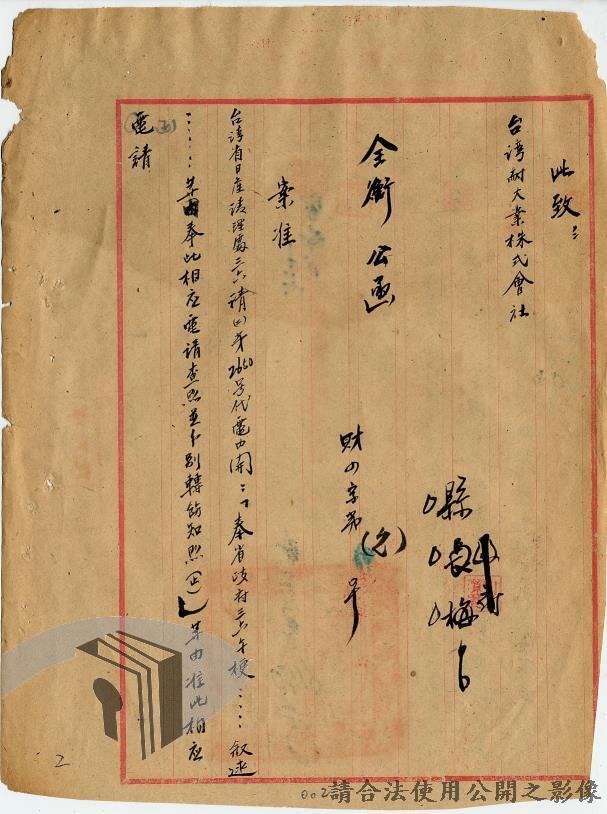 此致
台灣耐火業株式會社
縣長梅
全銜公函
財四字第 號
案准
台灣省日產清理處三六清(四)第2650号代電內開:「奉省政府三六午梗……叙述
……等因奉此相应電請查照並分别轉飭知照(正)」等由准此相应
電請
2
002
請合法使用公開之影像